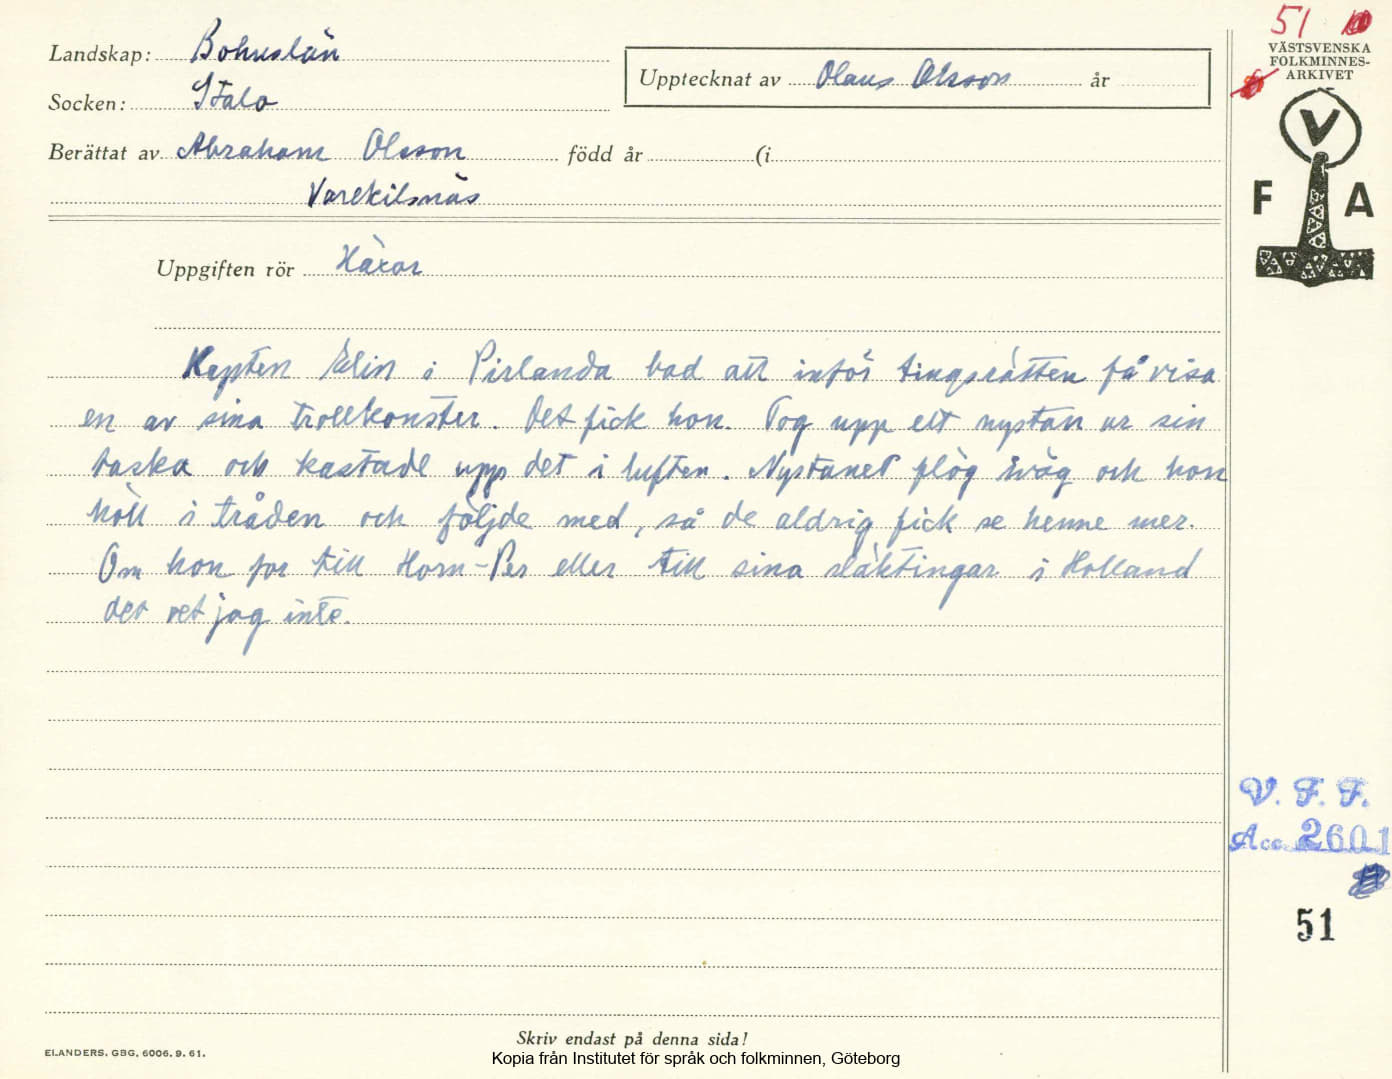 Landskap: Bohuslän
Socken: Stala
Upptecknat av Olaus Olsson år
Berättat av Abraham Olsson född år (i
Varekilsnäs
Uppgiften rör Häxor
Kapten Elin i Pirlanda bad att inför tingsrätten få visa
en av sina trollkonster. Det fick hon. Tog upp ett nystan ur sin
taska och kastade upp det i luften. Nystanet flög iväg och hon
höll i tråden och följde med, så de aldrig fick se henne mer.
Om hon for till Horn-Per eller till sina släktingar i Holland
det vet jag inte.
51
VÄSTSVENSKA
FOLKMINNES-
ARKIVET
V
F A
V. F. F.
Acc. 2601
51
Skriv endast på denna sida!
ELANDERS, GBG, 6006. 9. 61.
Kopia från Institutet för språk och folkminnen, Göteborg